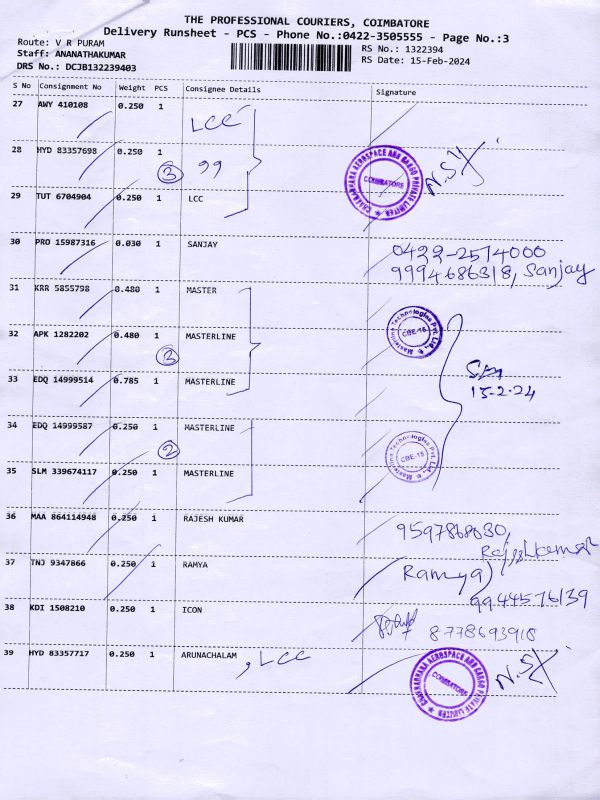 THE PROFESSIONAL COURIERS, COIMBATORE
Delivery Runsheet - PCS - Phone No.:0422-3505555 - Page No.:3
Route: V R PURAM
Staff: ANANATHAKUMAR
DRS No.: DCJB132239403
RS No.: 1322394
RS Date: 15-Feb-2024
S No Consignment No Weight PCS Consignee Details Signature
27 AWY 410108 0.250 1 LCC
28 HYD 83357698 0.250 1 ,,
3
CHAKRADHARA AEROSPACE AND CARGO PRIVATE LIMITED
COIMBATORE
29 TUT 6704904 0.250 1 LCC
30 PRO 15987316 0.030 1 SANJAY
0422-2574000
9994686318, Sanjay
31 KRR 5855798 0.480 1 MASTER
32 APK 1282202 0.480 1 MASTERLINE
3
Masterline Technologies Pvt. Ltd.,
CBE-15
33 EDQ 14999514 0.785 1 MASTERLINE
15-2-24
34 EDQ 14999587 0.250 1 MASTERLINE
2
Masterline Technologies Pvt. Ltd.,
CBE-15
35 SLM 339674117 0.250 1 MASTERLINE
36 MAA 864114948 0.250 1 RAJESH KUMAR
Rajeshkumar
37 TNJ 9347866 0.250 1 RAMYA
Ramya)
9944576139
38 KDI 1508210 0.250 1 ICON
8778693918
39 HYD 83357717 0.250 1 ARUNACHALAM , LCC
CHAKRADHARA AEROSPACE AND CARGO PRIVATE LIMITED
COIMBATORE